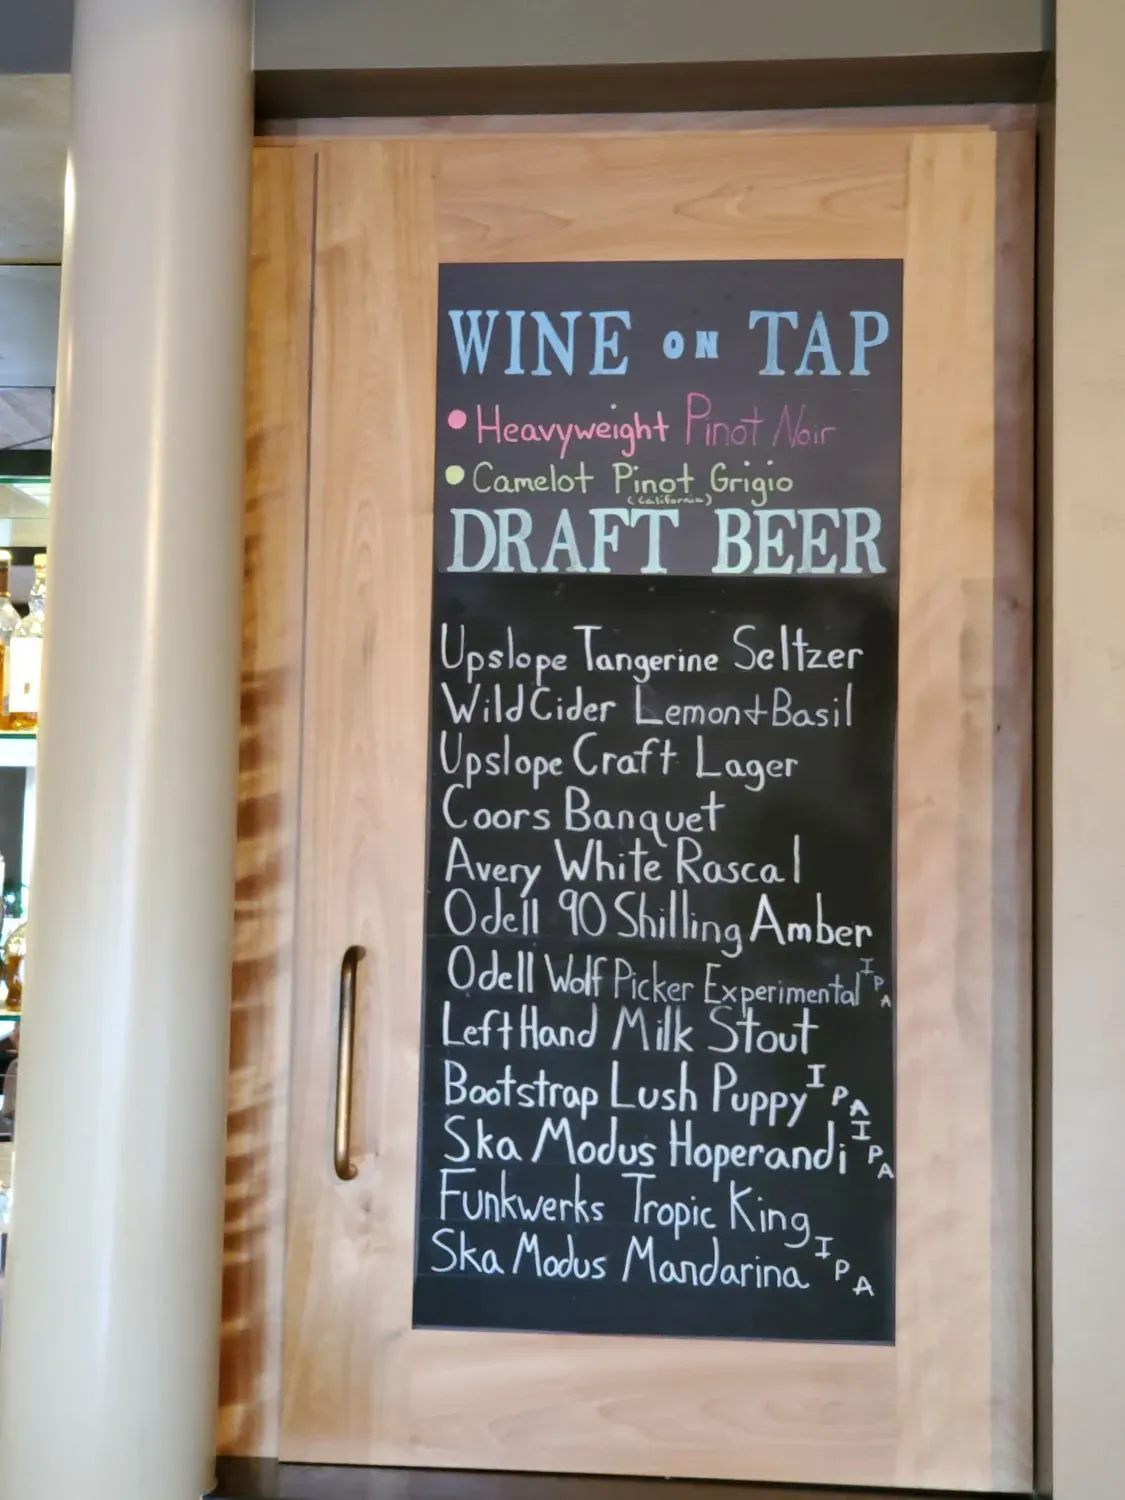 WINE ON TAP
• Heavyweight Pinot Noir
• Camelot Pinot Grigio
(California)
DRAFT BEER
Upslope Tangerine Seltzer
Wild Cider Lemon + Basil
Upslope Craft Lager
Coors Banquet
Avery White Rascal
Odell 90 Shilling Amber
Odell Wolf Picker Experimental IPA
Left Hand Milk Stout
Bootstrap Lush Puppy IPA
Ska Modus Hoperandi IPA
Funkwerks Tropic King
Ska Modus Mandarina IPA